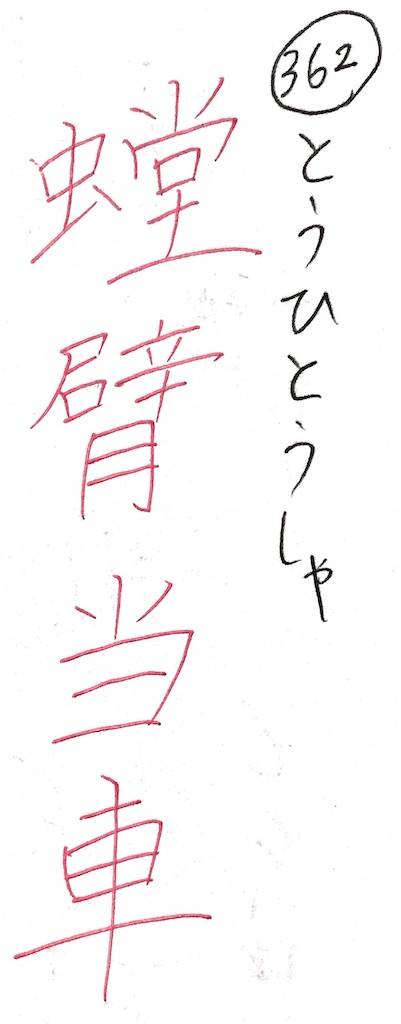 362
とうひとうしゃ
螳臂当車